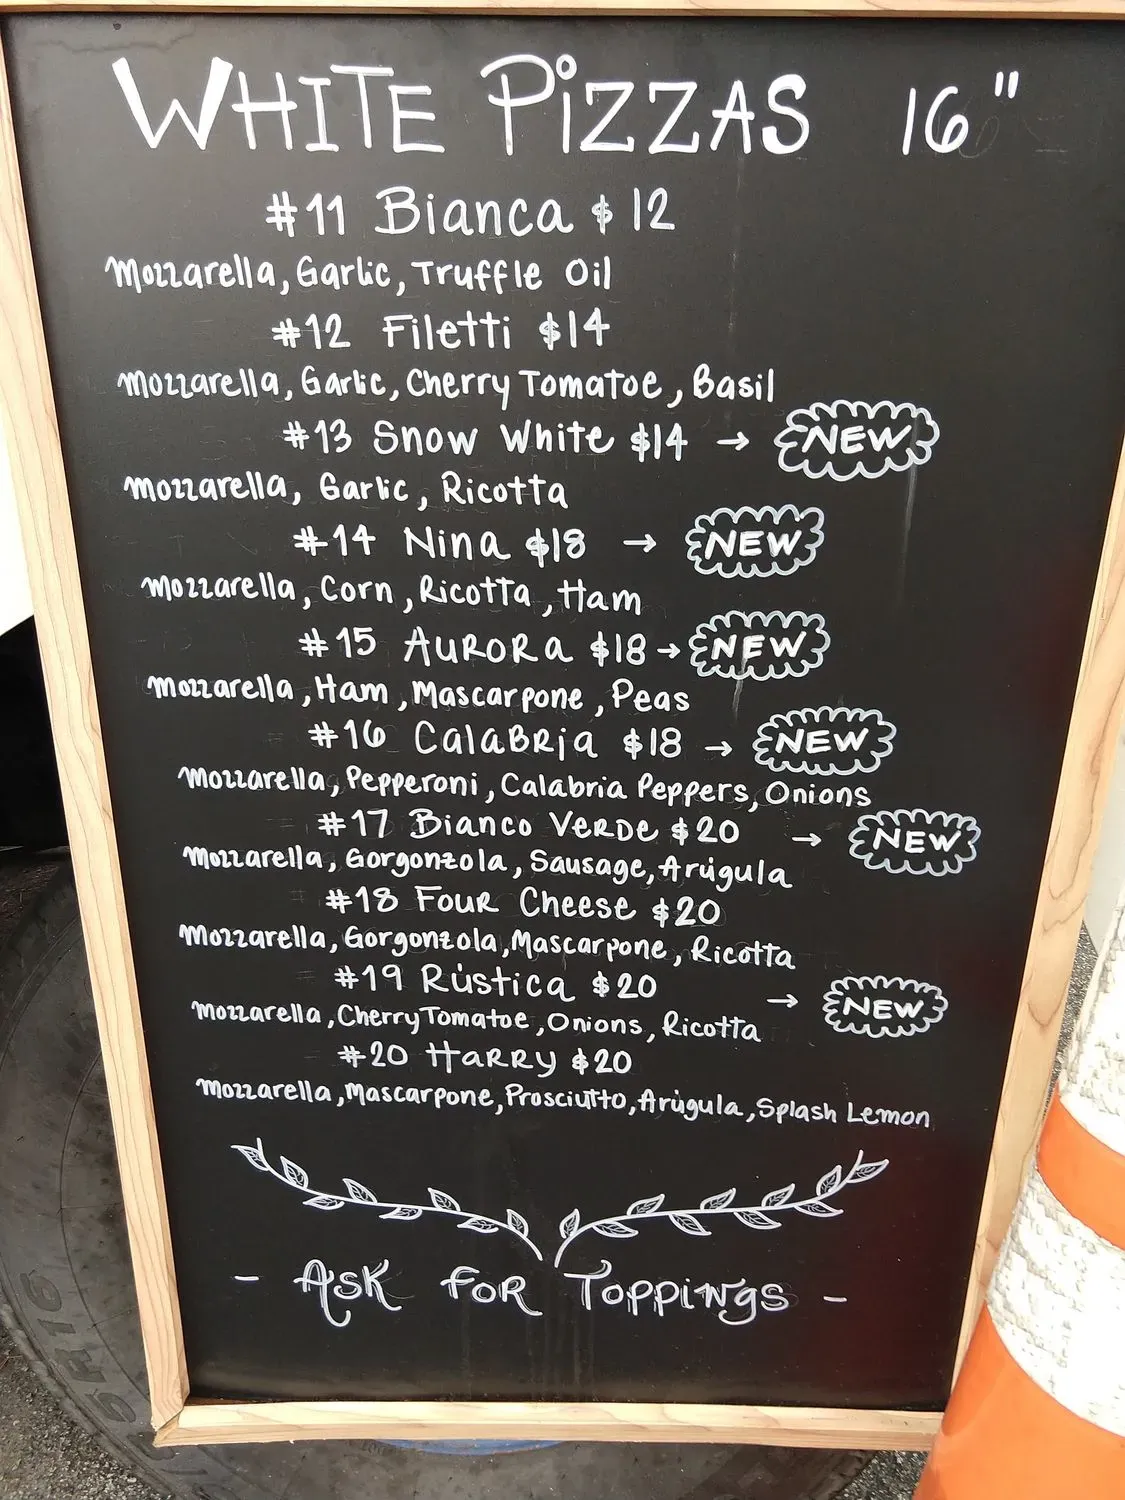 WHITE PIZZAS 16"
#11 Bianca $12
Mozzarella, Garlic, Truffle Oil
#12 Filetti $14
Mozzarella, Garlic, Cherry Tomatoe, Basil
#13 Snow White $14 → NEW
Mozzarella, Garlic, Ricotta
#14 Nina $18 → NEW
Mozzarella, Corn, Ricotta, Ham
#15 AURORA $18 → NEW
Mozzarella, Ham, Mascarpone, Peas
#16 CALABRIA $18 → NEW
Mozzarella, Pepperoni, Calabria Peppers, Onions
#17 Bianco VERDE $20 → NEW
Mozzarella, Gorgonzola, Sausage, Arúgula
#18 FOUR Cheese $20
Mozzarella, Gorgonzola, Mascarpone, Ricotta
#19 Rústica $20 → NEW
Mozzarella, Cherry Tomatoe, Onions, Ricotta
#20 HARRY $20
Mozzarella, Mascarpone, Prosciutto, Arúgula, Splash Lemon
- ASK FOR TOPPINGS -